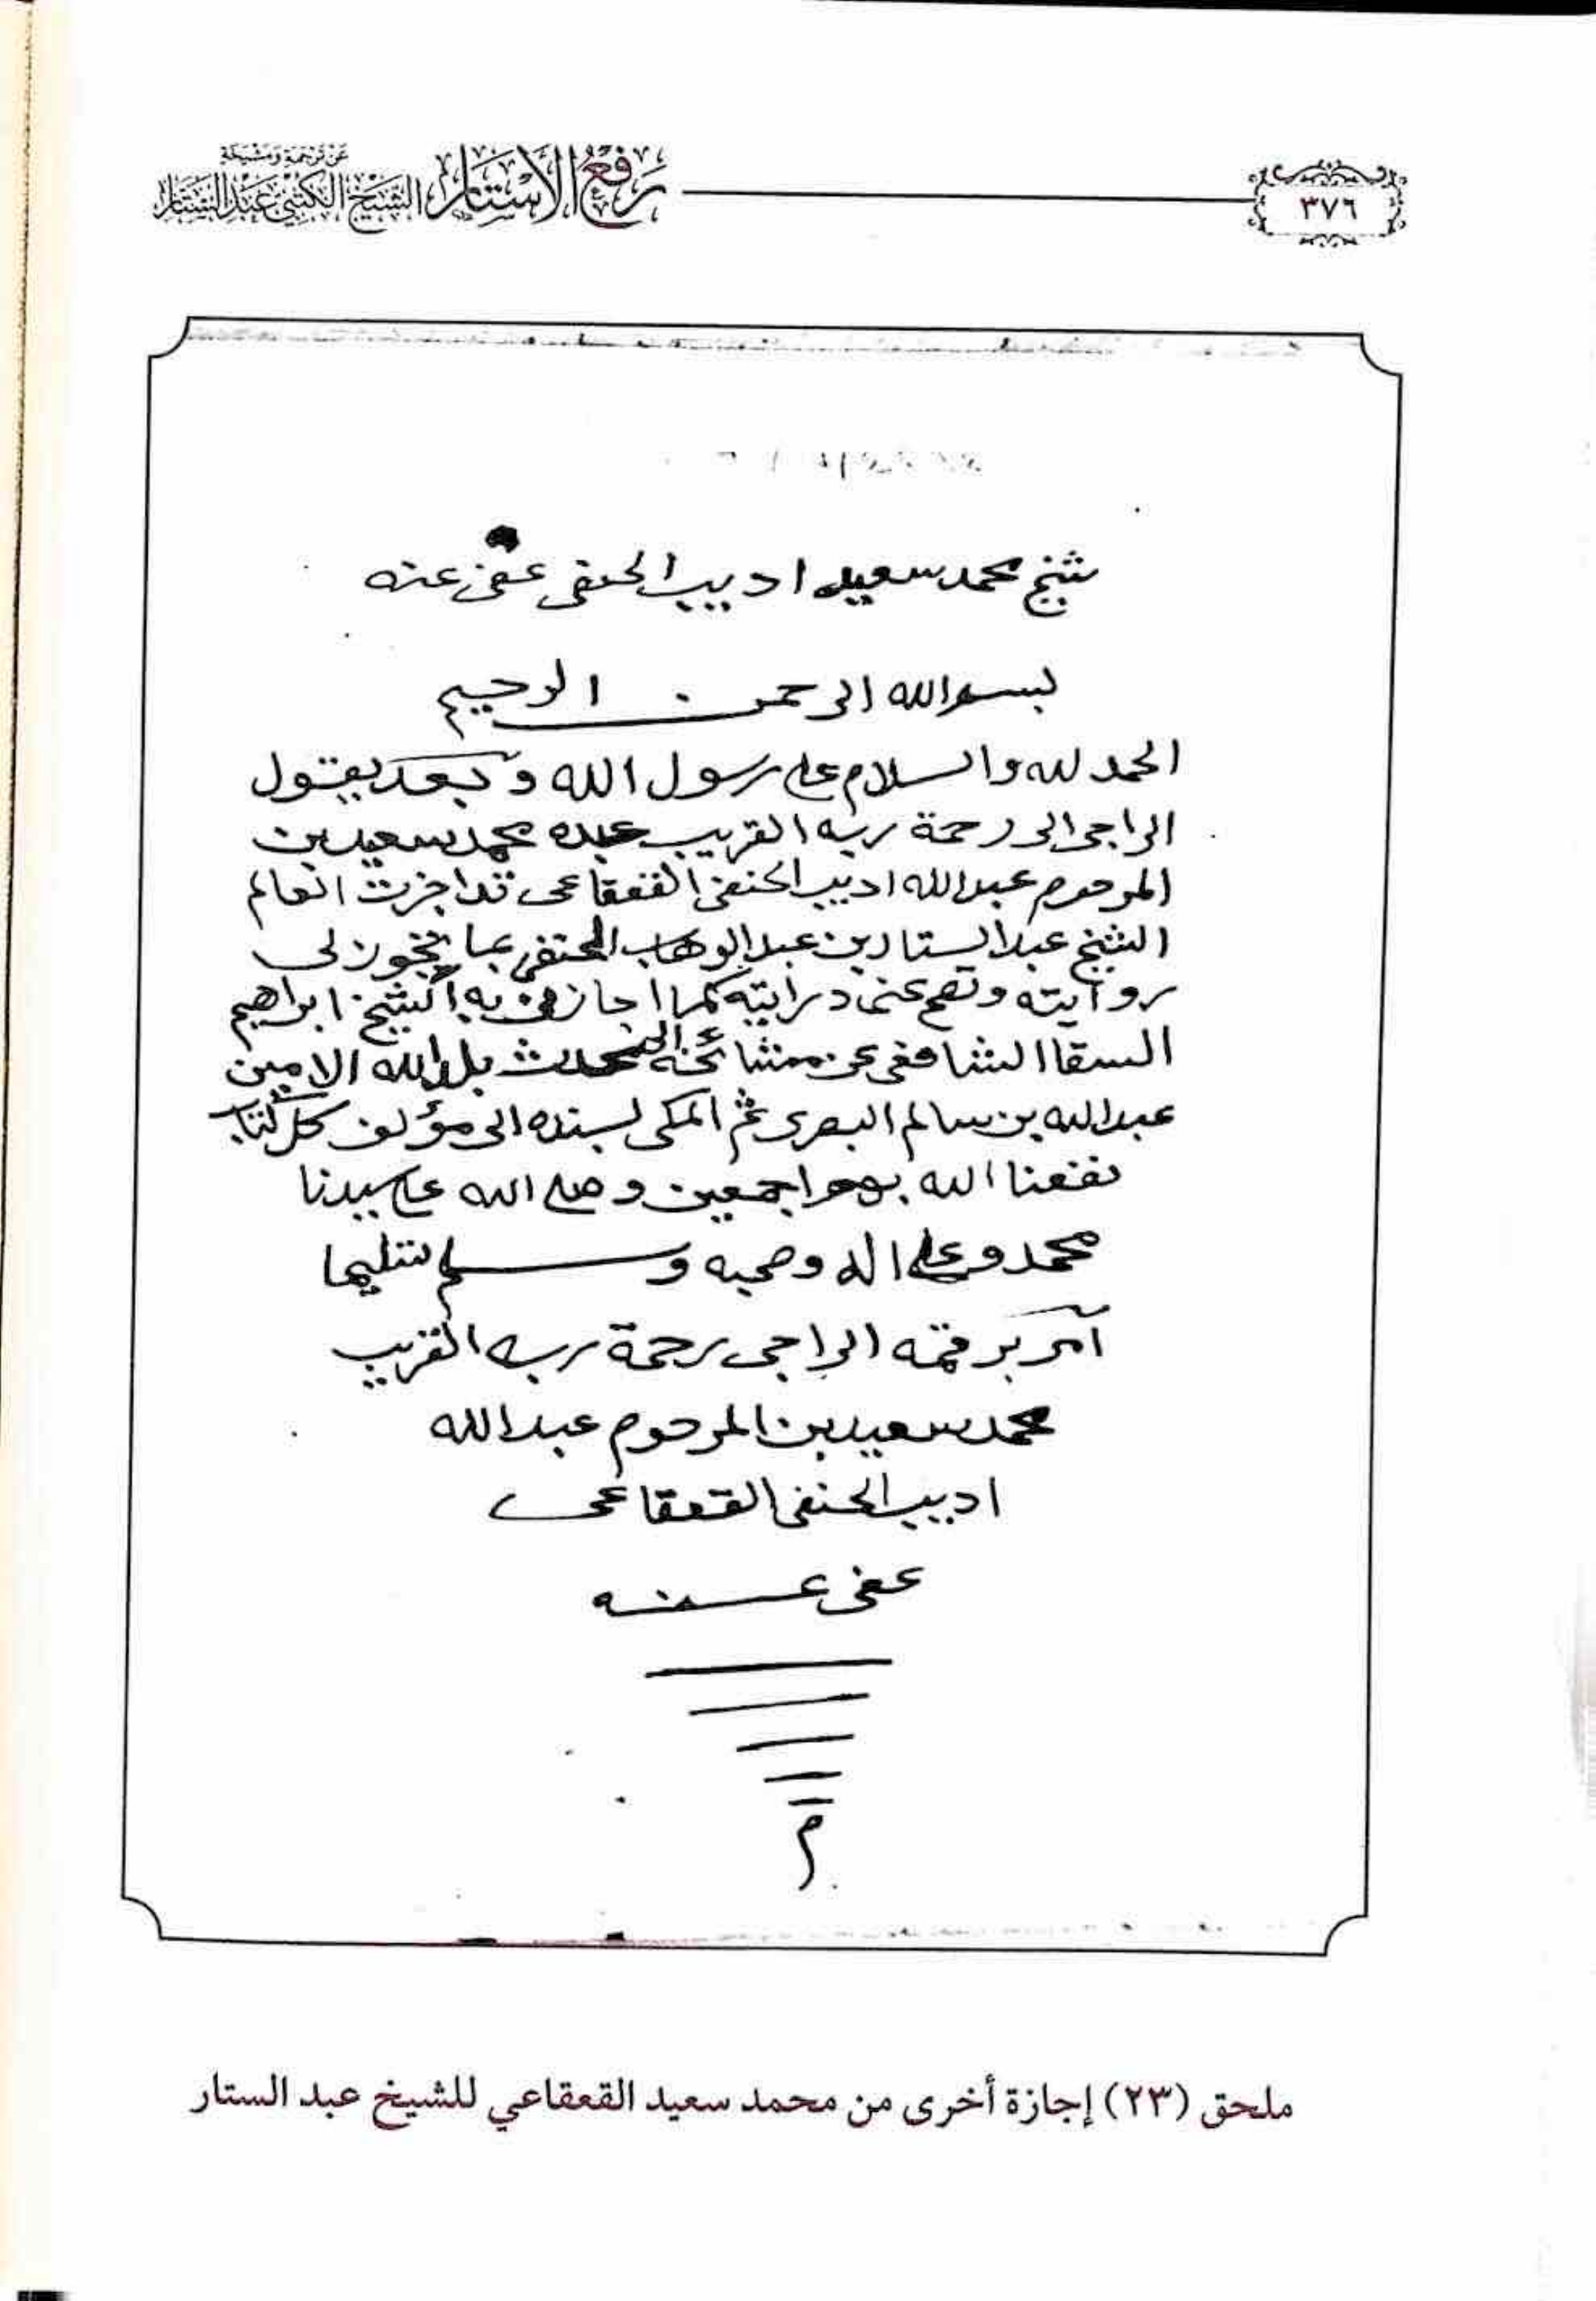 ٣٧٦
رفع الأستار
عن ترجمة ومشيخة
الشيخ الكتبي عبد الستار
شيخ محمد سعيد اديب الحنفى عفى عنه
بسم الله الرحمن الرحيم
الحمد لله والسلام على رسول الله وبعد يقول
الراجى الى رحمة ربه القريب عبده محمد سعيد بن
المرحوم عبدالله اديب الحنفى القعقاعى قد اجزت العالم
الشيخ عبدالستار بن عبدالوهاب الحنفى بما تجوز لى
روايته وتصح عنى درايته كما اجازنى به الشيخ ابراهيم
السقا الشافعى عن مشائخه المحدث بلد الله الامين
عبدالله بن سالم البصرى ثم المكى بسنده الى مؤلف كل كتاب
نفعنا الله بهم اجمعين وصلى الله على سيدنا
محمد وعلى اله وصحبه وسلم تسليما
آمر برقمه الراجى رحمة ربه القريب
محمد سعيد بن المرحوم عبدالله
اديب الحنفى القعقاعى
عفى عنه
م
ملحق (٢٣) إجازة أخرى من محمد سعيد القعقاعي للشيخ عبد الستار